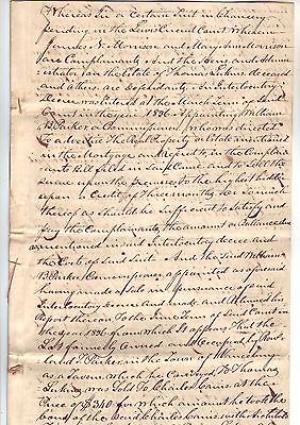 Whereas In a Certain Suit in Chancery
pending in the Lewis Circuit Court Wherein
James N. Morrison and Mary Ann Morrison
are Complainants & the Heirs and Admin-
istrator on the Estate of Thomas deceased
and others are defendants. An Interlocutory
Decree was entered at the March Term of said
Court in the year 1836 Appointing William
B. Parker a Commissioner, who was directed
To advertise The Real Property in Estate contained
in the Mortgage and refered to, in the Complain-
ants Bill filed in said Court and to sell the
Same upon the premises, to the highest bidder
upon a Credit of Three months for so much
thereof as should be Sufficient to Satisfy and
pay the Complainants, the amount or ballance due
as mentioned in said interlocutory decree and
the Costs of said Suit. And the said William
B. Parker Commissioner appointed as aforesaid
having made a Sale in pursuance of said
Interlocutory decree and made and returned his
Report thereon To the June Term of said Court in
the year 1836 from which it appears That the
Lot formerly Owned and Occupied by
Parker in the Town of
as a Tavern which he Conveyed To Thomas
was Sold To Charles at the
Price of $340 for which amount he took the
bond of the said Charles with